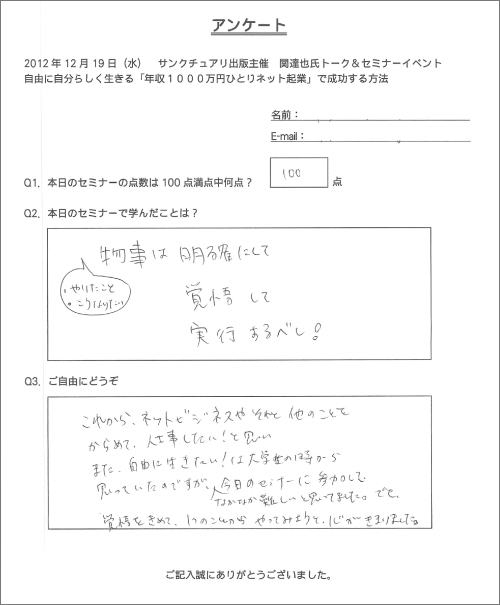 アンケート
2012年12月19日（水）　サンクチュアリ出版主催　関達也氏トーク＆セミナーイベント
自由に自分らしく生きる「年収１０００万円ひとりネット起業」で成功する方法
名前：
E-mail：
Q1．本日のセミナーの点数は100点満点中何点？　100　点
Q2．本日のセミナーで学んだことは？
物事は明確にして
・やりたいこと
・こうなりたい
覚悟して
実行あるべし！
Q3．ご自由にどうぞ
これから、ネットビジネスやそれと他のことを
からめて、仕事したい！と思い
また、自由に生きたい！は大学生の時から
思っていたのですが、今日のセミナーに参加して
なかなか難しいと思ってました。でも、
覚悟をきめて、1つのことから やってみようと、心がきまりました。
ご記入誠にありがとうございました。